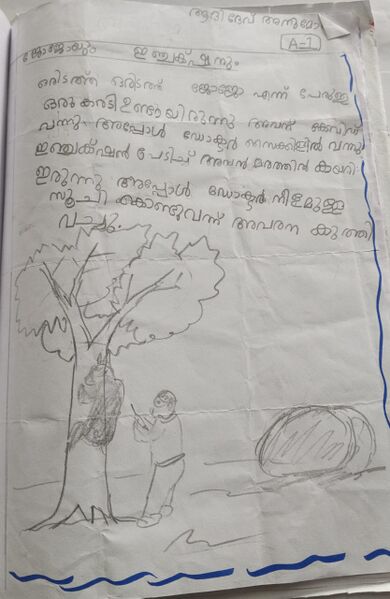 ആദിദേവ് അനുമോ
A-1
ജോജോയും ഇഞ്ചക്ഷനും.
ഒരിടത്ത് ഒരിടത്ത് ജോജോ എന്ന് പേരുള്ള
ഒരു കരടി ഉണ്ടായിരുന്നു അവന്
വന്നു. അപ്പോൾ ഡോക്ടർ സൈക്കിളിൽ വന്നു
ഇഞ്ചക്ഷൻ പേടിച്ച് അവൻ മരത്തിൽ കയറി.
ഇരുന്നു അപ്പോൾ ഡോക്ടർ നീളമുള്ള
സൂചി ക്കൊണ്ടുവന്ന് അവനെ കുത്തി
വച്ചു.